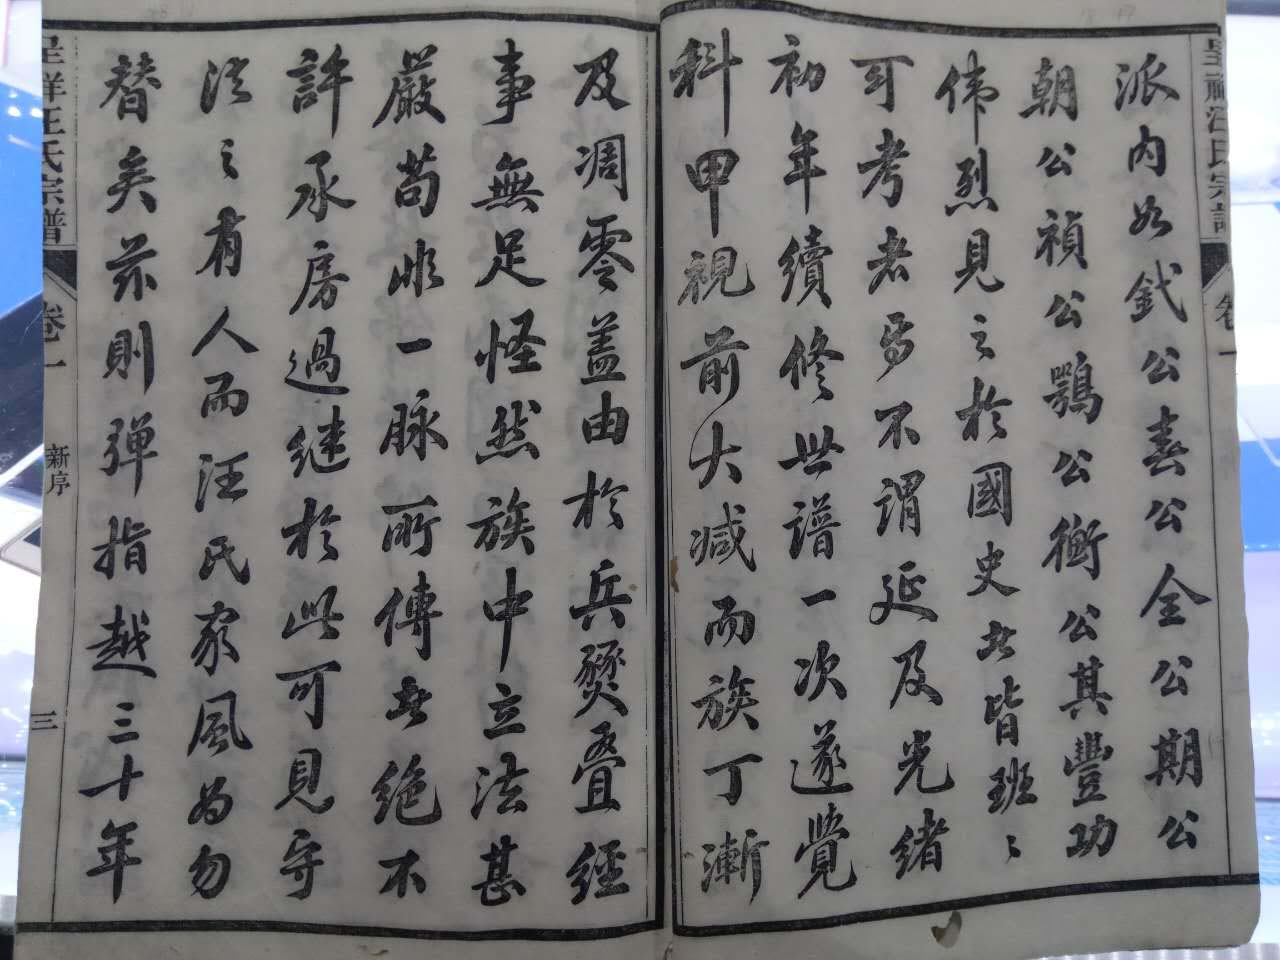 派内如鈛公春公全公期公
朝公禎公鶚公衡公其豐功
偉烈見之於國史者皆班〻
可考者焉不謂延及光緒
初年續修世譜一次遂覺
科甲視前大減而族丁漸
及凋零蓋由於兵燹叠經
事無足怪然族中立法甚
嚴苟非一脉所傳者絶不
許承房過継於此可見守
法之有人而汪氏家風為勿
替矣茲則彈指越三十年
呈祥汪氏宗譜
卷一
新序
三